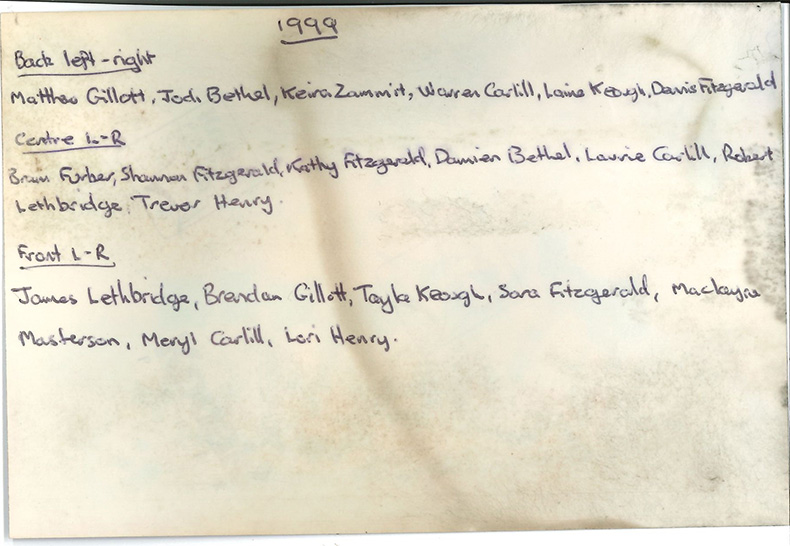 1999
Back left-right
Matthew Gillott, Jodi Bethel, Keira Zammit, Warren Carlill, Laine Keough, Dannis Fitzgerald
Centre L-R
Furber, Shannon Fitzgerald, Kathy Fitzgerald, Damien Bethel, Laurie Carlill, Robert
Lethbridge, Trevor Henry.
Front L-R
James Lethbridge, Brendan Gillott, Tayla Keough, Sara Fitzgerald, Mackayne
Masterson, Meryl Carlill, Lori Henry.